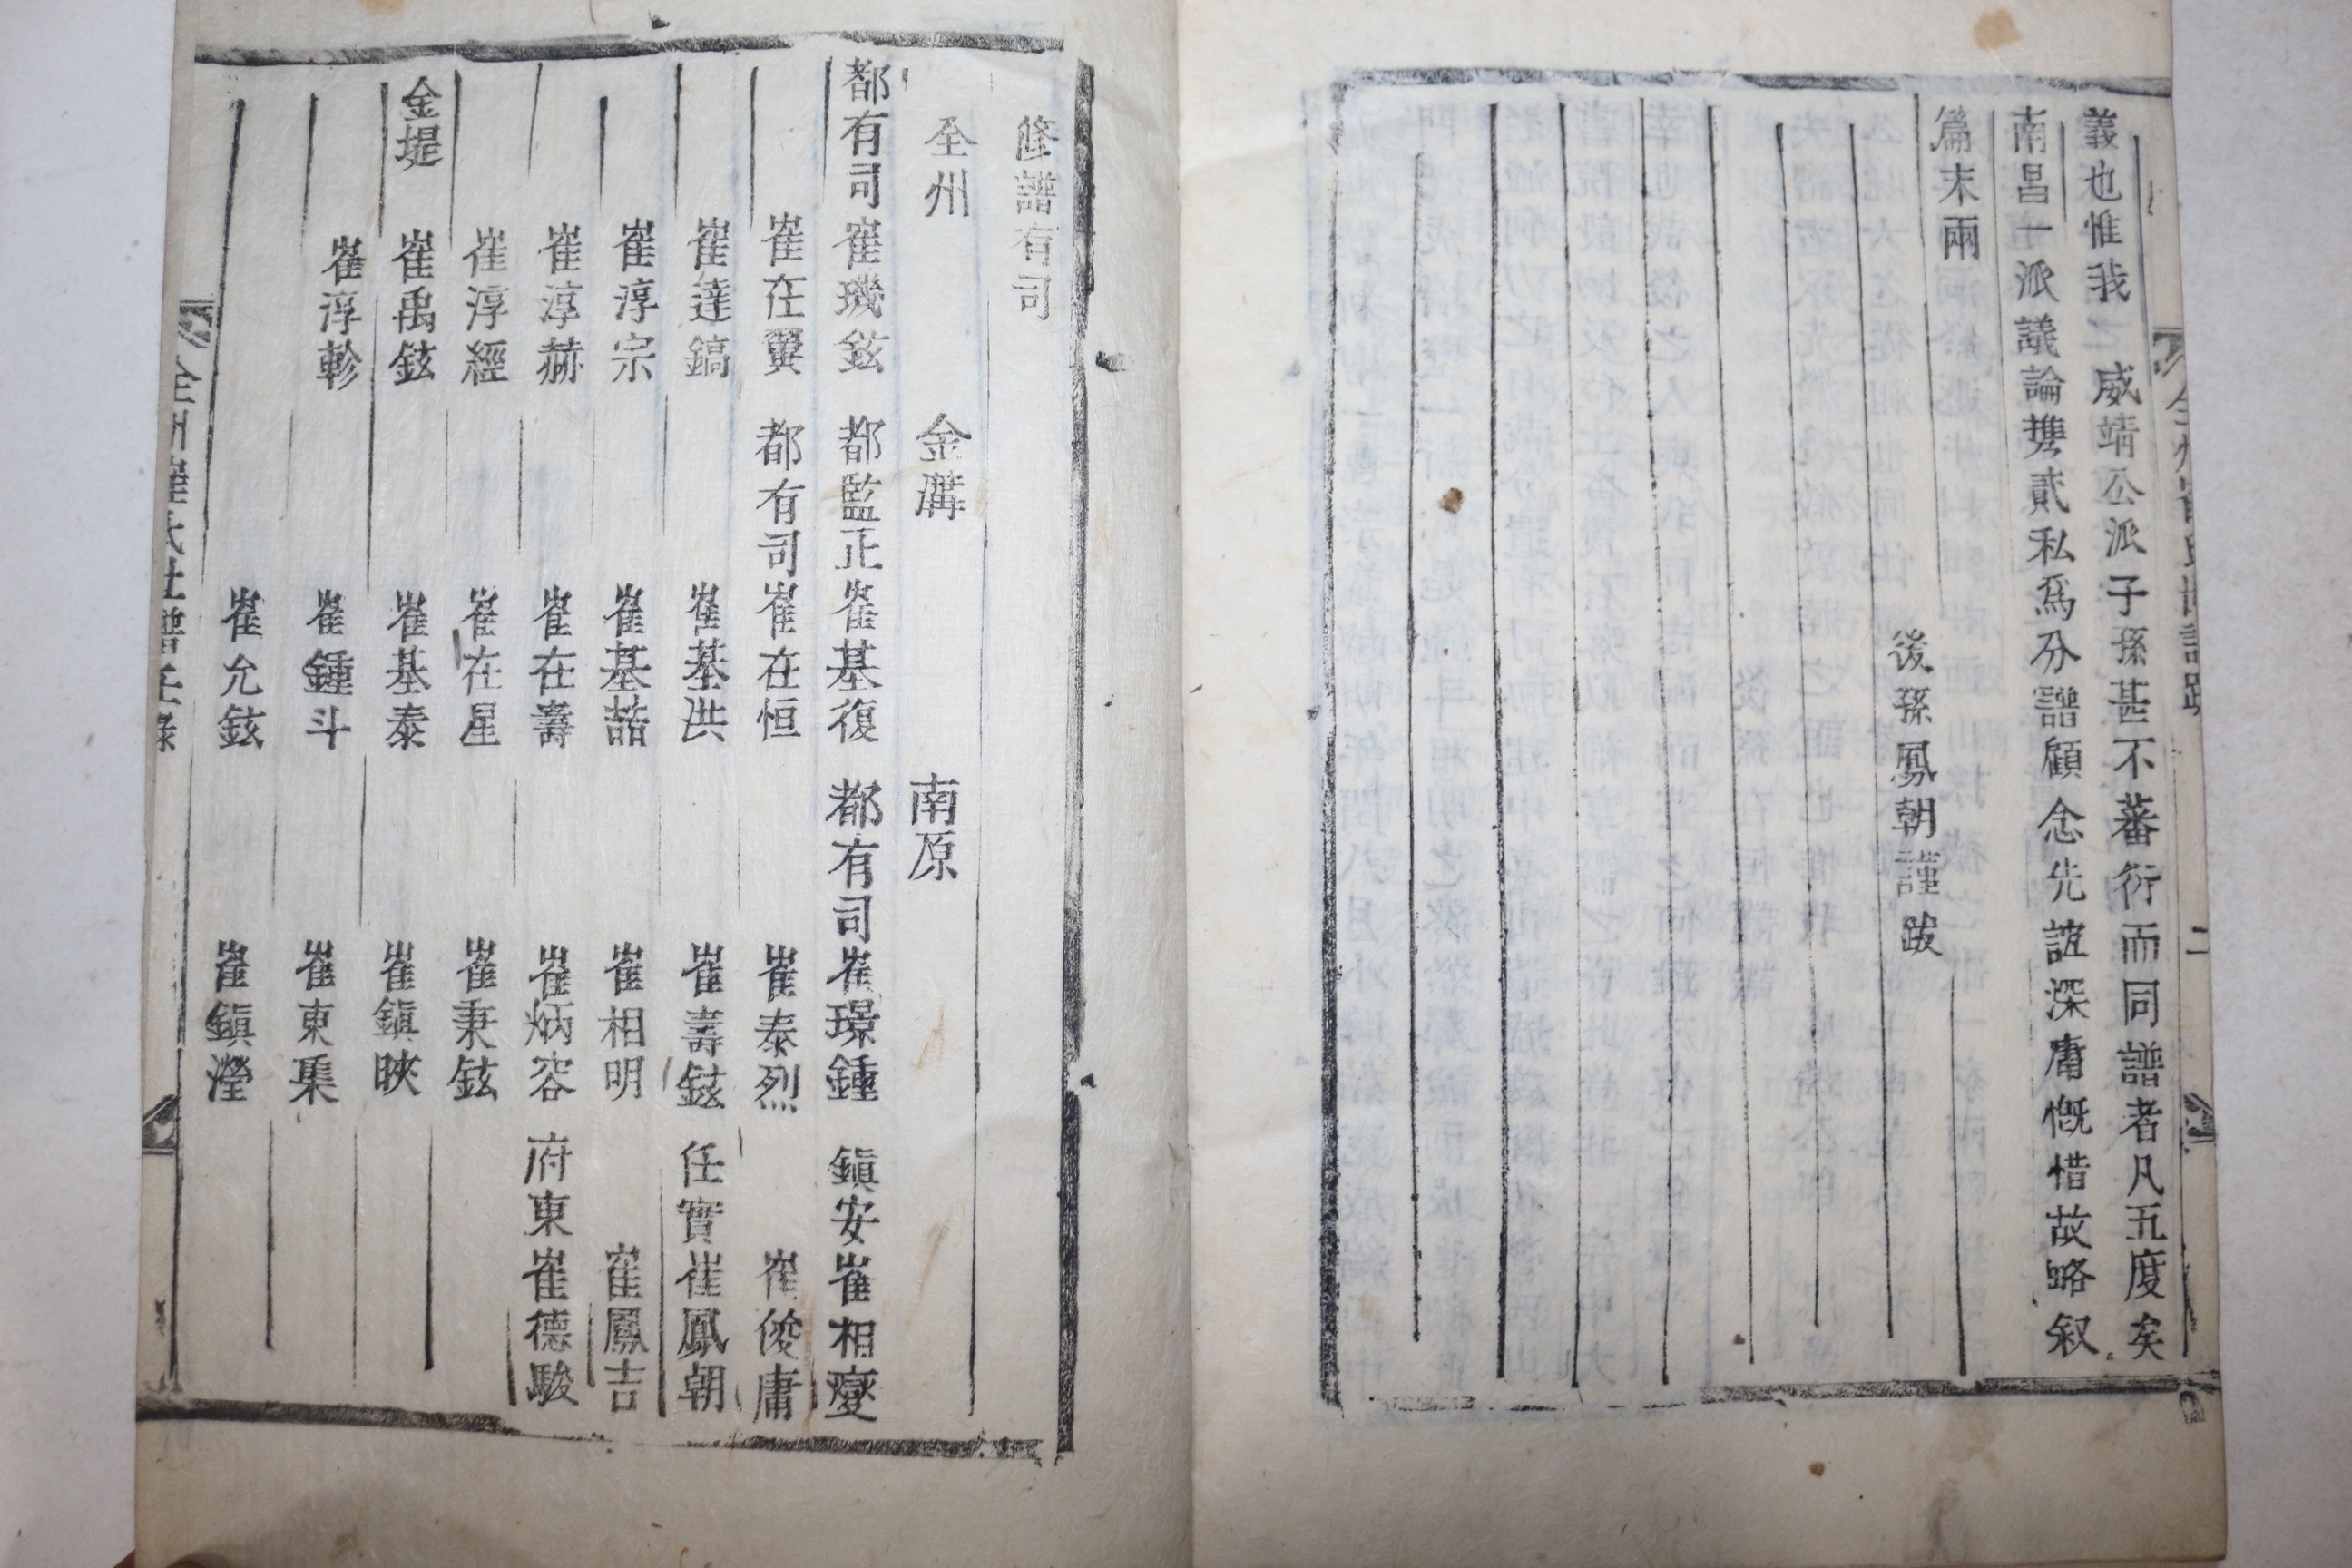 義也惟我 威靖公派子孫甚不蕃衍而同譜者凡五度矣
南昌一派議論携貳私爲分譜顧念先誼深庸慨惜故略叙
篇末兩
後孫鳳朝謹跋
二
修譜有司
全州 金溝 南原
都有司崔璣鉉 都監正崔基復 都有司崔璟鍾 鎭安崔相燮
崔在翼 都有司崔在恒 崔泰烈 崔俊庸
崔達鎬 崔基洪 崔壽鉉 任實崔鳳朝
崔淳宗 崔基喆 崔相明 崔鳳吉
崔淳赫 崔在壽 崔炳容 府東崔德駿
崔淳經 崔在星 崔秉鉉
金堤 崔禹鉉 崔基泰 崔鎭映
崔淳軫 崔鍾斗 崔東集
崔允鉉 崔鎭瀅
全州崔氏世譜